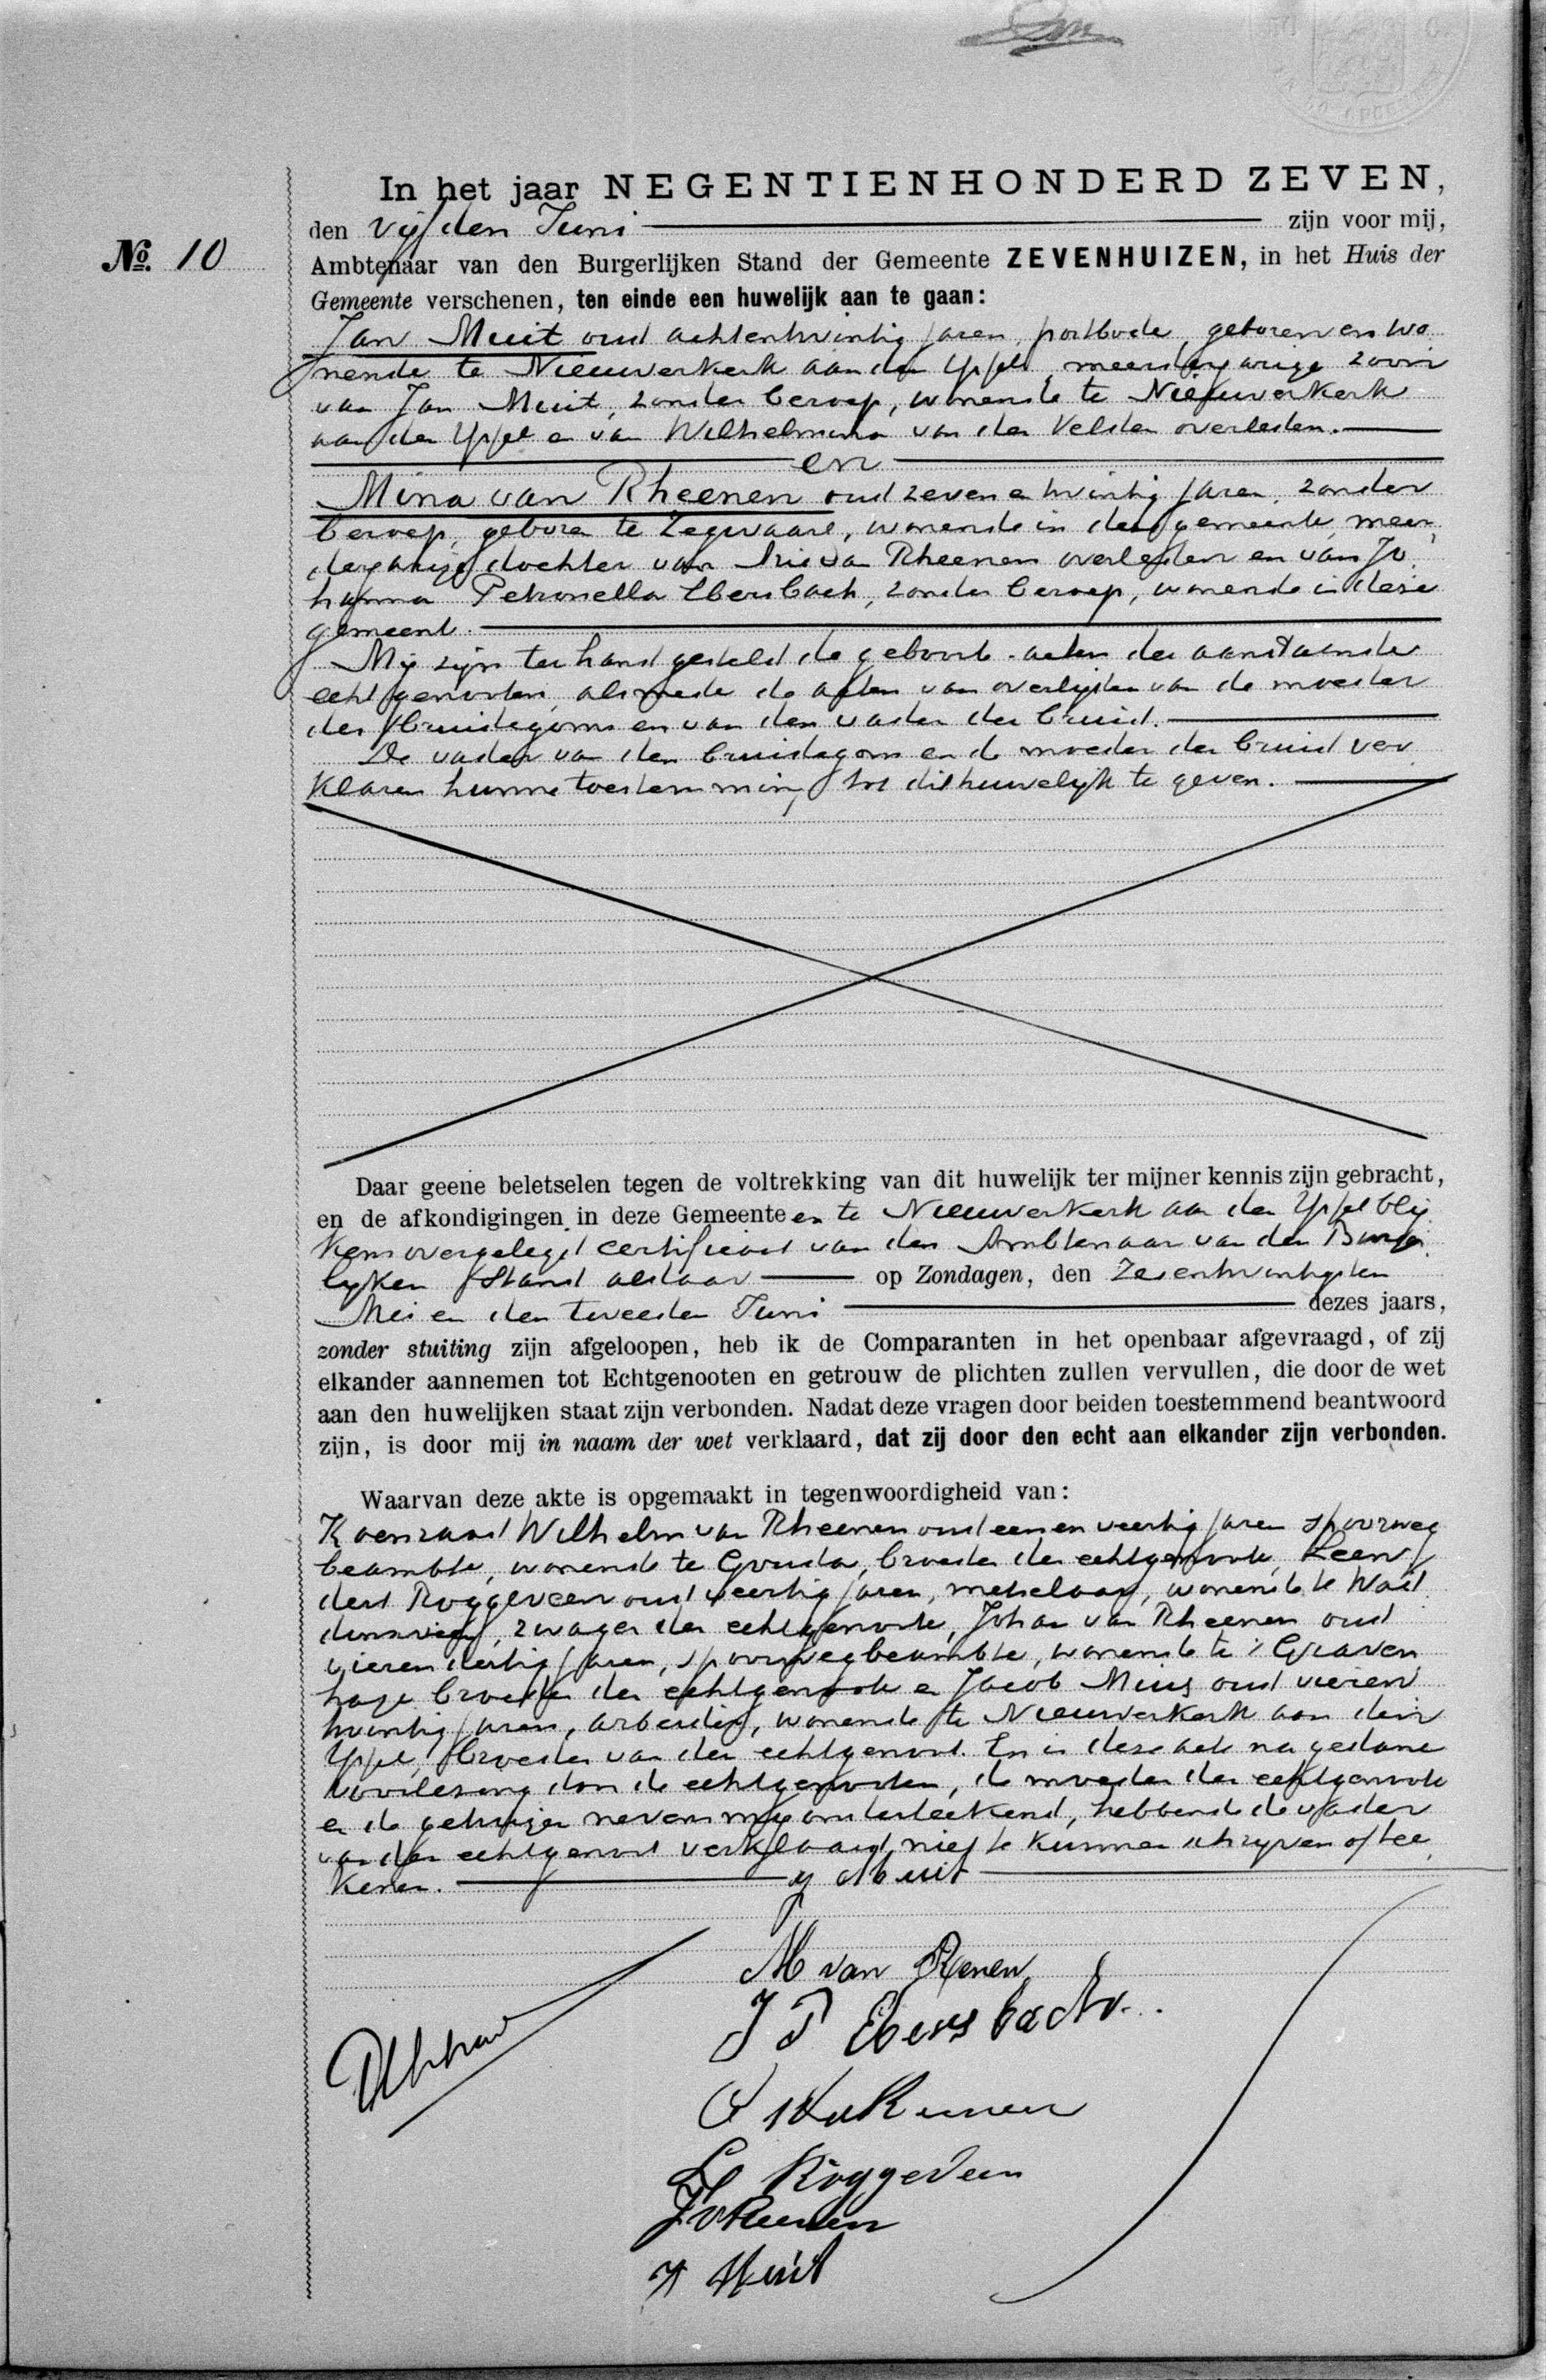 In het jaar NEGENTIENHONDERD ZEVEN,
den vijfden Juni zijn voor mij,
No. 10
Ambtenaar van den Burgerlijken Stand der Gemeente ZEVENHUIZEN, in het Huis der
Gemeente verschenen, ten einde een huwelijk aan te gaan:
Jan Muit oud achtentwintig jaren, postbode, geboren en wo
nende te Nieuwerkerk aan den Yssel, meerderjarige zoon
van Jan Muit, zonder beroep, wonende te Nieuwerkerk
aan den Yssel en van Wilhelmina van der Velden overleden.
en
Mina van Rheenen oud zeven en twintig jaren, zonder
beroep, geboren te Zegwaart, wonende in deze gemeente, meer
derjarige dochter van Arie van Rheenen overleden en van Jo
hanna Petronella Ebersbach, zonder beroep, wonende in deze
gemeente.
Mij zijn ter hand gesteld de geboorte-acten der aanstaande
echtgenooten, alsmede de acten van overlijden van de moeder
des bruidegoms en van den vader der bruid.
De vader van den bruidegom en de moeder der bruid ver
klaren hunne toestemming tot dit huwelijk te geven.
Daar geene beletselen tegen de voltrekking van dit huwelijk ter mijner kennis zijn gebracht,
en de afkondigingen in deze Gemeente en te Nieuwerkerk aan den Yssel blij
kens overgelegd certificaat van den Ambtenaar van den Burger
lijken Stand aldaar op Zondagen, den Zesentwintigsten
Mei en den tweeden Juni dezes jaars,
zonder stuiting zijn afgeloopen, heb ik de Comparanten in het openbaar afgevraagd, of zij
elkander aannemen tot Echtgenooten en getrouw de plichten zullen vervullen, die door de wet
aan den huwelijken staat zijn verbonden. Nadat deze vragen door beiden toestemmend beantwoord
zijn, is door mij in naam der wet verklaard, dat zij door den echt aan elkander zijn verbonden.
Waarvan deze akte is opgemaakt in tegenwoordigheid van:
Koenraad Wilhelm van Rheenen oud eenen veertig jaren spoorweg
beambte, wonende te Gouda, broeder der echtgenoote, Leen
dert Roggeveen oud veertig jaren, metselaar, wonende te Wad
dinxveen, zwager der echtgenoote, Johan van Rheenen oud
vieren dertig jaren, spoorwegbeambte, wonende te 's Graven
hage broeder der echtgenoote en Jacob Muit oud vieren
twintig jaren, arbeider, wonende te Nieuwerkerk aan den
Yssel, broeder van den echtgenoot. En is deze acte na gedane
voorlezing door de echtgenooten, de moeder der echtgenoote
en de getuigen nevens mij onderteekend, hebbende de vader
van den echtgenoot verklaard niet te kunnen schrijven of tee
kenen.
J Muit
M van Renen
J P Ebersbach
L Roggeveen
J v Reenen
J Muit